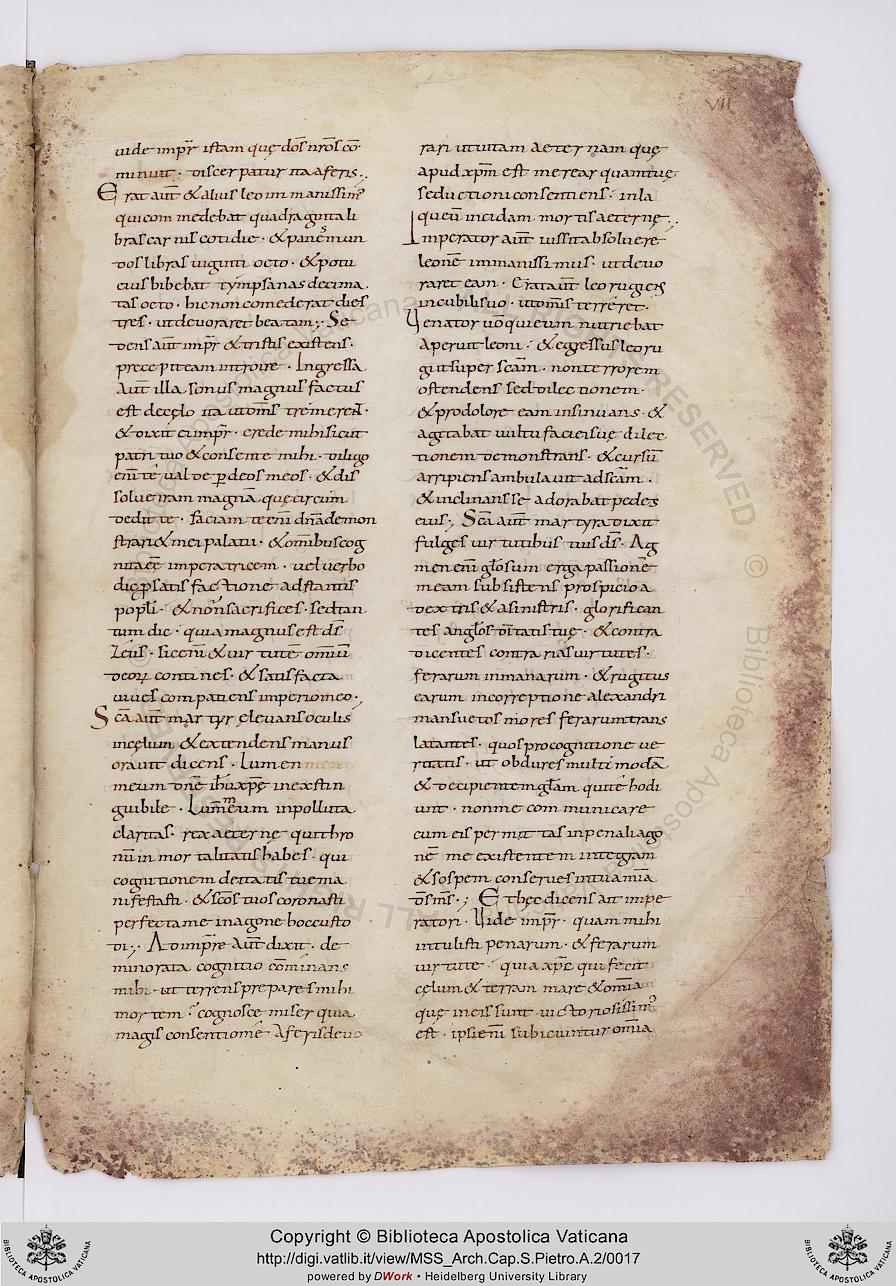 VII
uide impr̄ istam quę dōs nr̄os cō
minuit · discerpatur ita aferis ·,
Erat aūt & alius leo immanissimꝰ
qui comedebat quadraginta li
bras carnis cotidie · & panes mun
dos libras uiginti octo · & potu
eius bibebat tympanas decima
tas octo · hic non comederat dies
tres · ut deuoraret beatam ·, Se
dens aūt impr̄ & tristis existens ·
precepit eam introire · Ingressa
aūt illa sonus magnus factus
est decęlo ita ut om̄s tremerent ·
& dixit ei impr̄ · crede mihi sicut
patri tuo & consente mihi · diligo
enī te ualde p deos meos · & dis
solue iram magnā quę circum
dedit te · faciam te enī dnā demon
strari & mei palatii · & omībus cog
nita eē imperatricem · uel uerbo
dic psatisfactione adstantis
popli · & non sacrifices · sed tan
tum dic · quia magnus est ds̄
Zeus · sic enī & uirtutē omniū
deoꝝ contines · & satisfacta
uiues compatiens imperio meo ·,
Scā aūt martyr eleuans oculis
incęlum & extendens manus
orauit dicens · Lumen
meum dnē ihū xpē inextin
guibile · Lumen meum inpolluta
claritas · rex aeterne qui thro
nū inmortalitatis habes · qui
cognitionem deitatis tuę ma
nifestasti · & scōs tuos coronasti
perfecta me inagone hoc custo
di ·, Ad impr̄e aūt dixit · de
minorata cognitio cōminans
mihi · ut terrens prepares mihi
mortem · cognosce miser quia
magis consentio me aferis deuo
rari ut uitam aeternam quę
apud xpm̄ est merear quam tuę
seductioni consentiens · in la
queū incidam mortis aeternę ·,
Imperator aūt iussit absoluere
leonē immanissimus · ut deuo
raret eam · Erat aūt leo rugiens
incubili suo · ut om̄is terreret ·
Uenator uō qui eum nutriebat
aperuit leoni · & egressus leo ru
git super scām · non terrorem
ostendens sed dilectionem ·
& prodolore eam insinuans · &
agitabat uultu faciei suę dilec
tionem demonstrans · & cursū
arripiens ambulauit ad scām ·
& inclinans se adorabat pedes
eius ·, Scā aūt martyra dixit
fulges uirtutibus tuis ds̄ · Ag
men enī glosum erga passionē
meam subsistens prospicio a
dextris & asinistris · glorifican
tes anglos dītatis tuę · & contra
dicentes contrarias uirtutes ·
ferarum inmanarum · & rugitus
earum incorreptione alexandri
mansuetos mores ferarum trans
latantes · quos procognitione ue
ritatis · ut obdures multimodā
& decipientem glam qui tē hodi
unt · non me communicare
cum eis permittas inpenali ago
nē me existentem integram
& sospem conserues in tua mīa
dōs ms̄ ·, Et hęc dicens ait impe
ratori · Uide impr̄ · quam mihi
intulisti penarum · & ferarum
uirtute · quia xpē qui fecit
cęlum & terram mare & omīa
quę in eis sunt uictoriosissimꝰ
est · ipsi enī subiciuntur omīa
Copyright © Biblioteca Apostolica Vaticana
http://digi.vatlib.it/view/MSS_Arch.Cap.S.Pietro.A.2/0017
powered by DWork • Heidelberg University Library